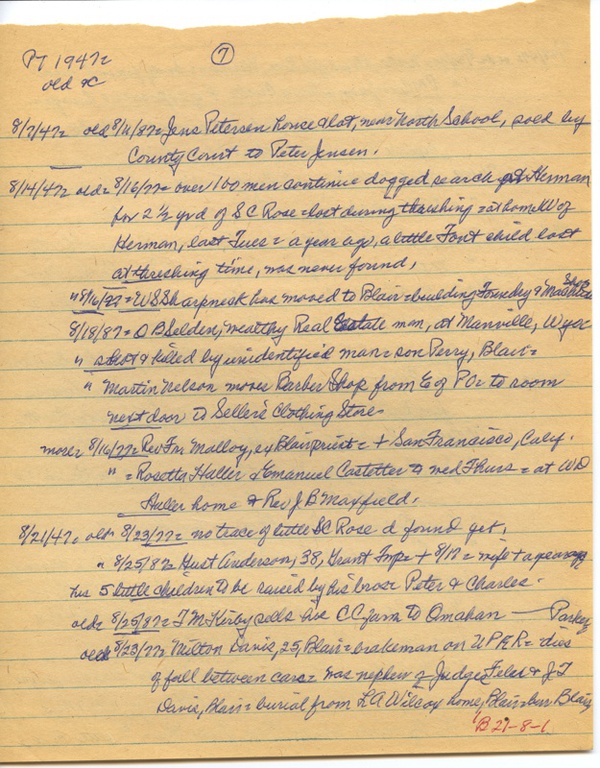 PT 1947=
⑦
old x
8/7/47= old 8/11/87= Jens Petersen house & lot, near North School, sold by
County Court to Peter Jensen.
8/14/47 old= 8/16/77= over 100 men continue dogged search Herman
for 2 1/2 yr d of SC Rose = lost during threshing = at home NW of
Herman, last Tues = a year ago, a little Font child lost
at threshing time, was never found.
" 8/16/77 = WS Sharpneck has moved to Blair = building Foundry & Machine Shop
8/18/87 = OB Selden, wealthy Real Estate man, at Manville, Wyo
" shot & killed by unidentified man = son Perry, Blair =
" Martin Nelson moves Barber Shop from E of PO = to room
next door to Seller's Clothing Store
more= 8/16/77= Rev Fr Malloy, ex Blair priest = + San Francisco, Calif.
" = Rosetta Haller & Emanuel Castetter wed Thurs = at WD
Haller home & Rev J B Maxfield.
8/21/47= old= 8/23/77= no trace of little SC Rose d found yet.
" 8/25/87= Gust Anderson, 38, Grant Twp = + 8/17 = wife + a year ago
his 5 little children to be raised by his bros = Peter & Charles.
old= 8/25/87= T M Kirby sells his CC farm to Omahan — Parker
old= 8/23/77= Milton Davis, 25, Blair = brakeman on UPRR = dies
of fall between cars = was nephew of Judge & JT
Davis, Blair = burial from LA Wilcox home, Blair = bur Blair
"B 27-8-1